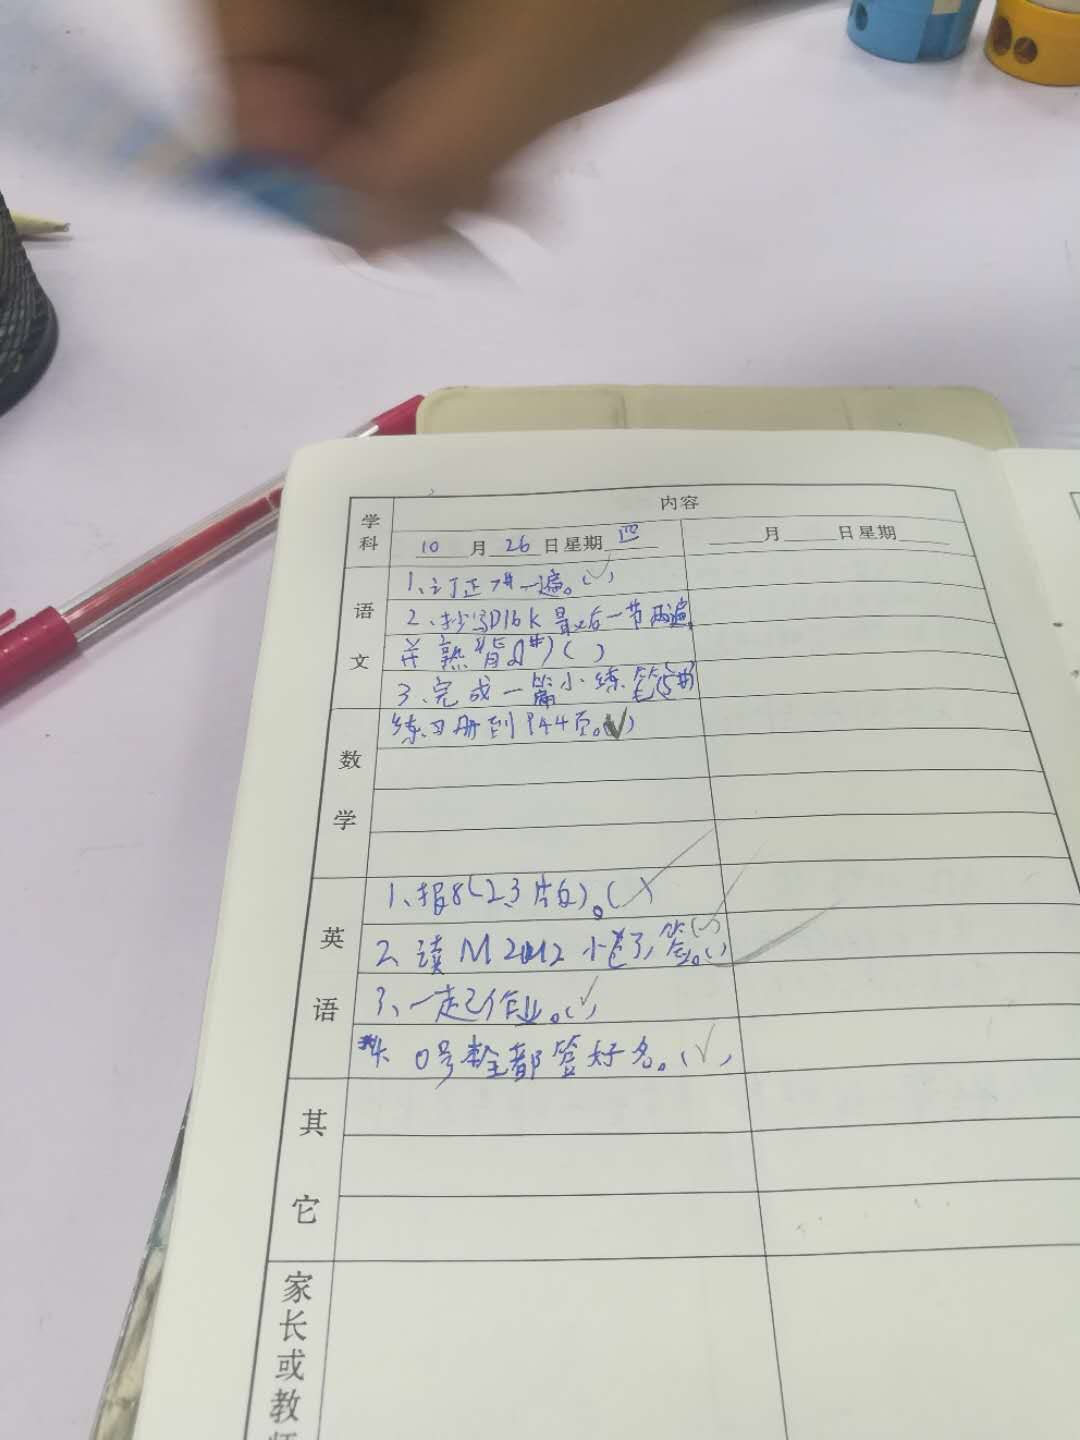 学科 内容
10月26日星期四 月 日星期
语文
1、订正 一遍。(✓)
2、抄写D16k最后一节两遍,
并熟背 ( )
3、完成一篇小练笔
数学
练习册到P44页。(✓)
英语
1、报8(2、3版)。( )
2、读M2U2 签。( )
3、一起作业。(✓)
4、0号 全部签好名。(✓)
其它
家长或教